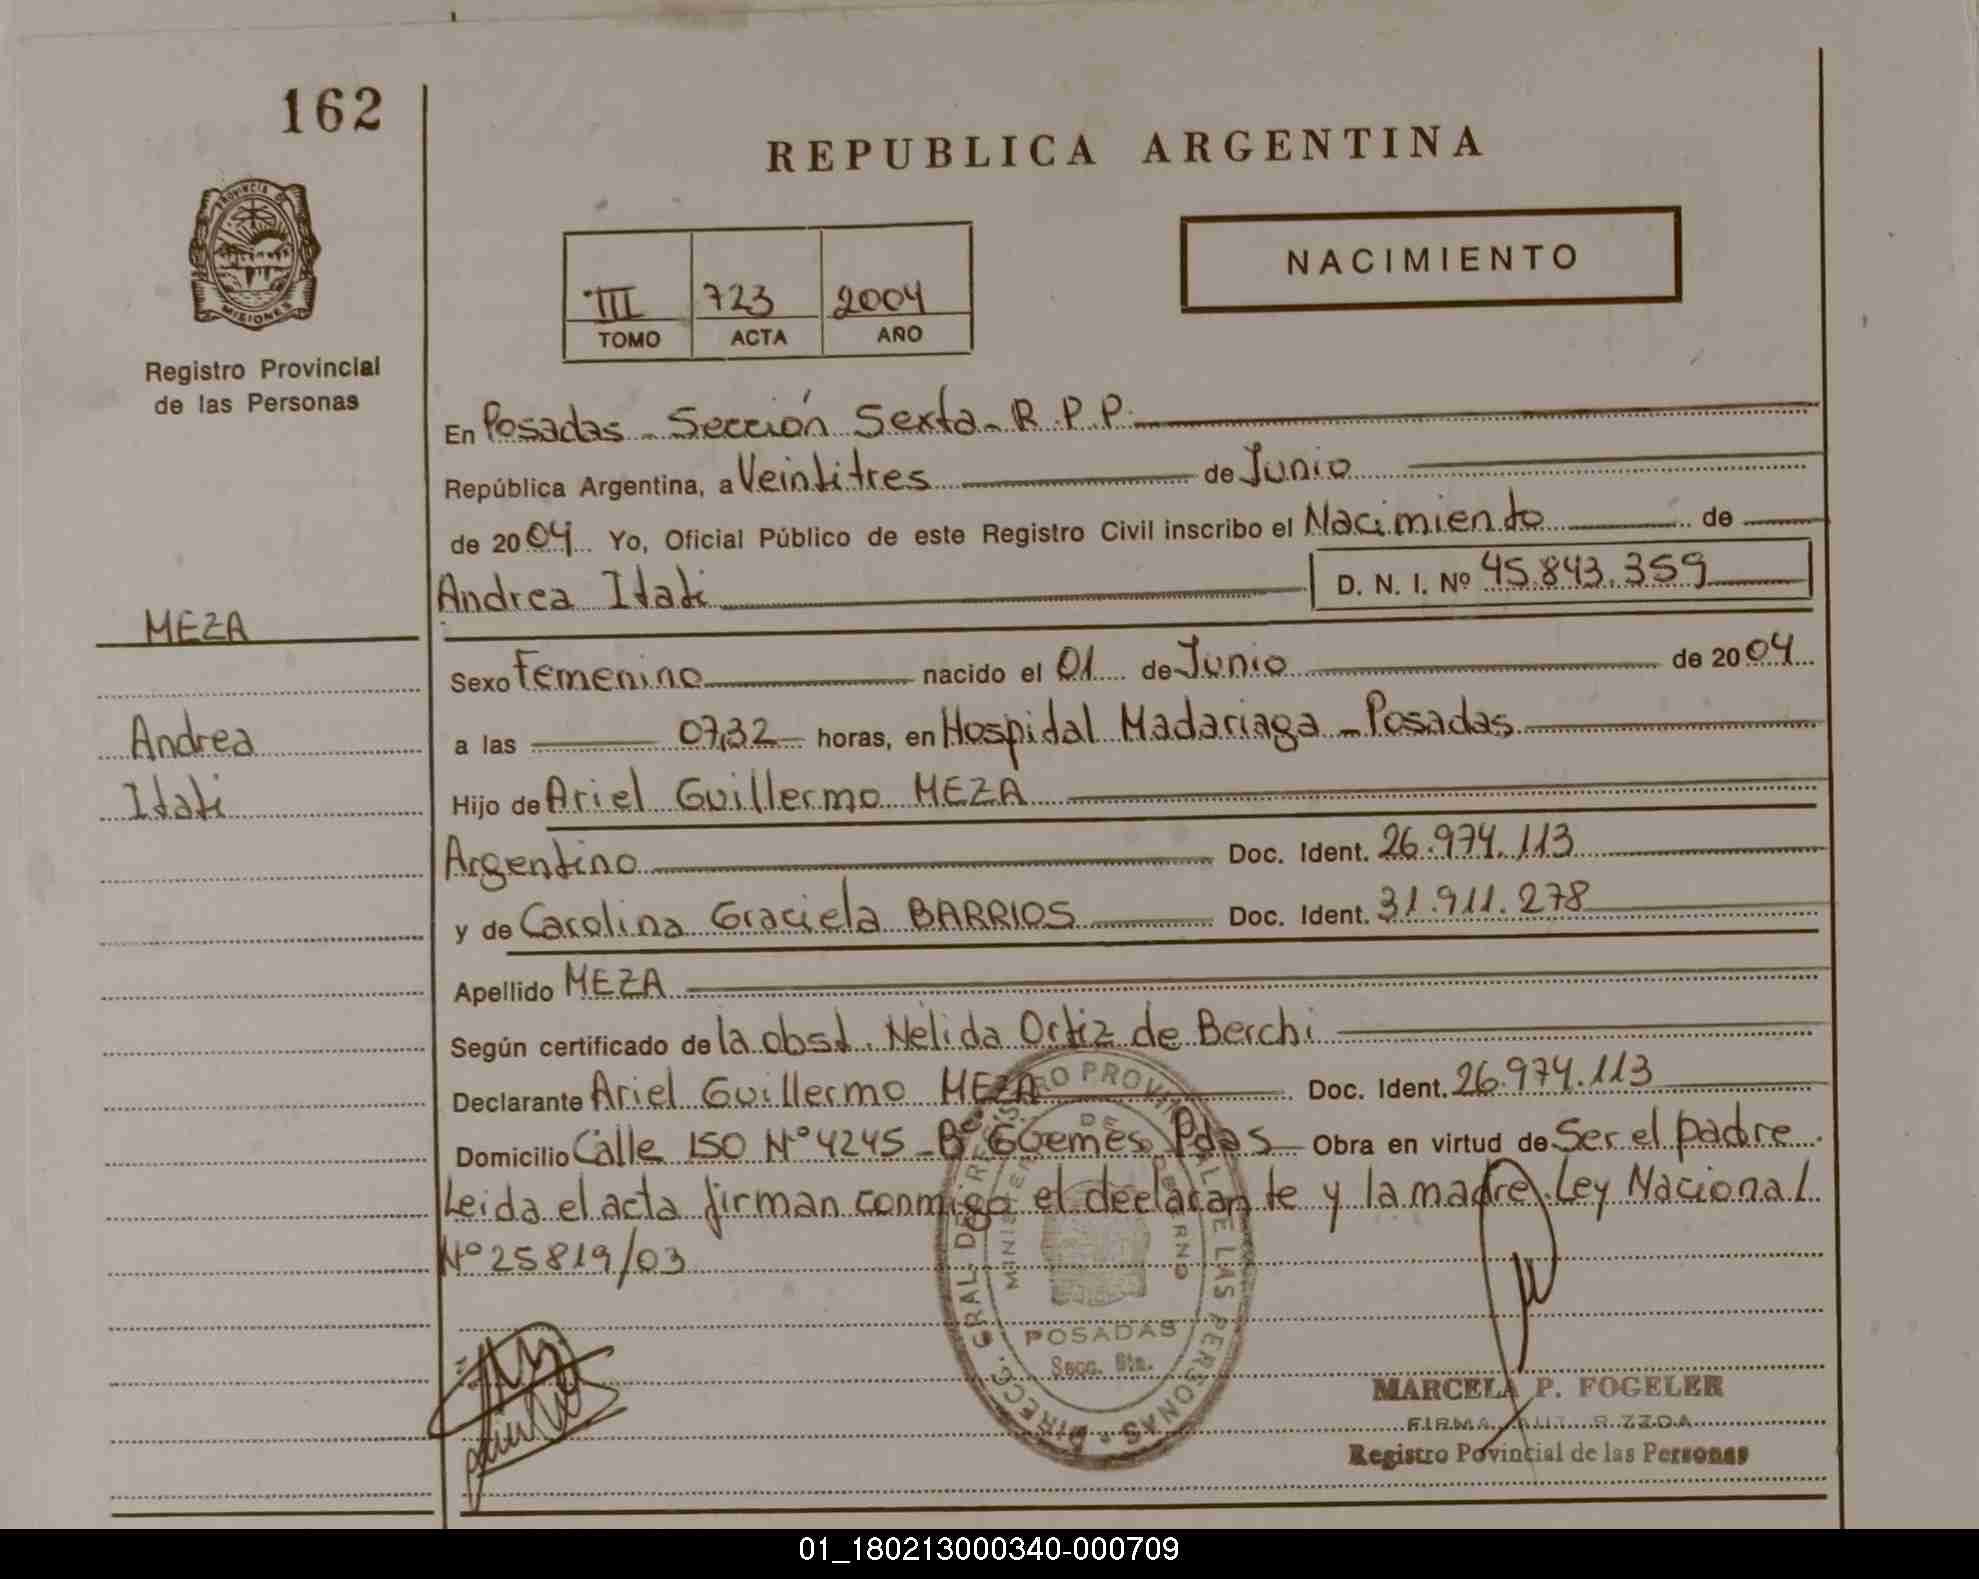 162
REPUBLICA ARGENTINA
PROVINCIA DE
MISIONES
Registro Provincial
de las Personas
III 723 2004
TOMO ACTA AÑO
NACIMIENTO
En Posadas - Sección Sexta - R.P.P.
República Argentina, a Veintitres de Junio
de 2004 Yo, Oficial Público de este Registro Civil inscribo el Nacimiento de
Andrea Itati D. N. I. Nº 45.843.359
MEZA
Andrea
Itati
Sexo Femenino nacido el 01 de Junio de 2004
a las 07,32 horas, en Hospital Madariaga - Posadas
Hijo de Ariel Guillermo MEZA
Argentino Doc. Ident. 26.974.113
y de Carolina Graciela BARRIOS Doc. Ident. 31.911.278
Apellido MEZA
Según certificado de la obst. Nelida Ortiz de Berchi
Declarante Ariel Guillermo MEZA Doc. Ident. 26.974.113
Domicilio Calle 150 Nº 4245 - Bº Güemes Pdas Obra en virtud de Ser el padre.
Leida el acta firman conmigo el declarante y la madre. Ley Nacional
Nº 25819/03
DIRECC. GRAL. DE REGISTRO PROVINCIAL DE LAS PERSONAS
MINISTERIO DE GOBIERNO
POSADAS
Secc. 6ta.
MARCELA P. FOGELER
Registro Povincial de las Personas
01_180213000340-000709